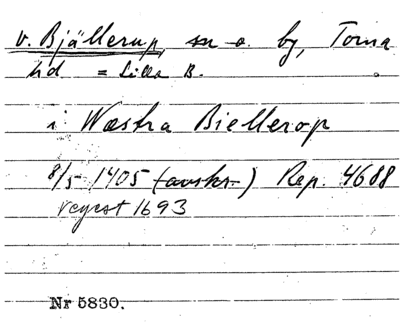 v. Bjällerup, sn o. by, Torna
hd = Lilla B.
i Wæstra Biellerop
8/5 1405 (avskr.) Rep. 4688
regest 1693
Nr 5830.